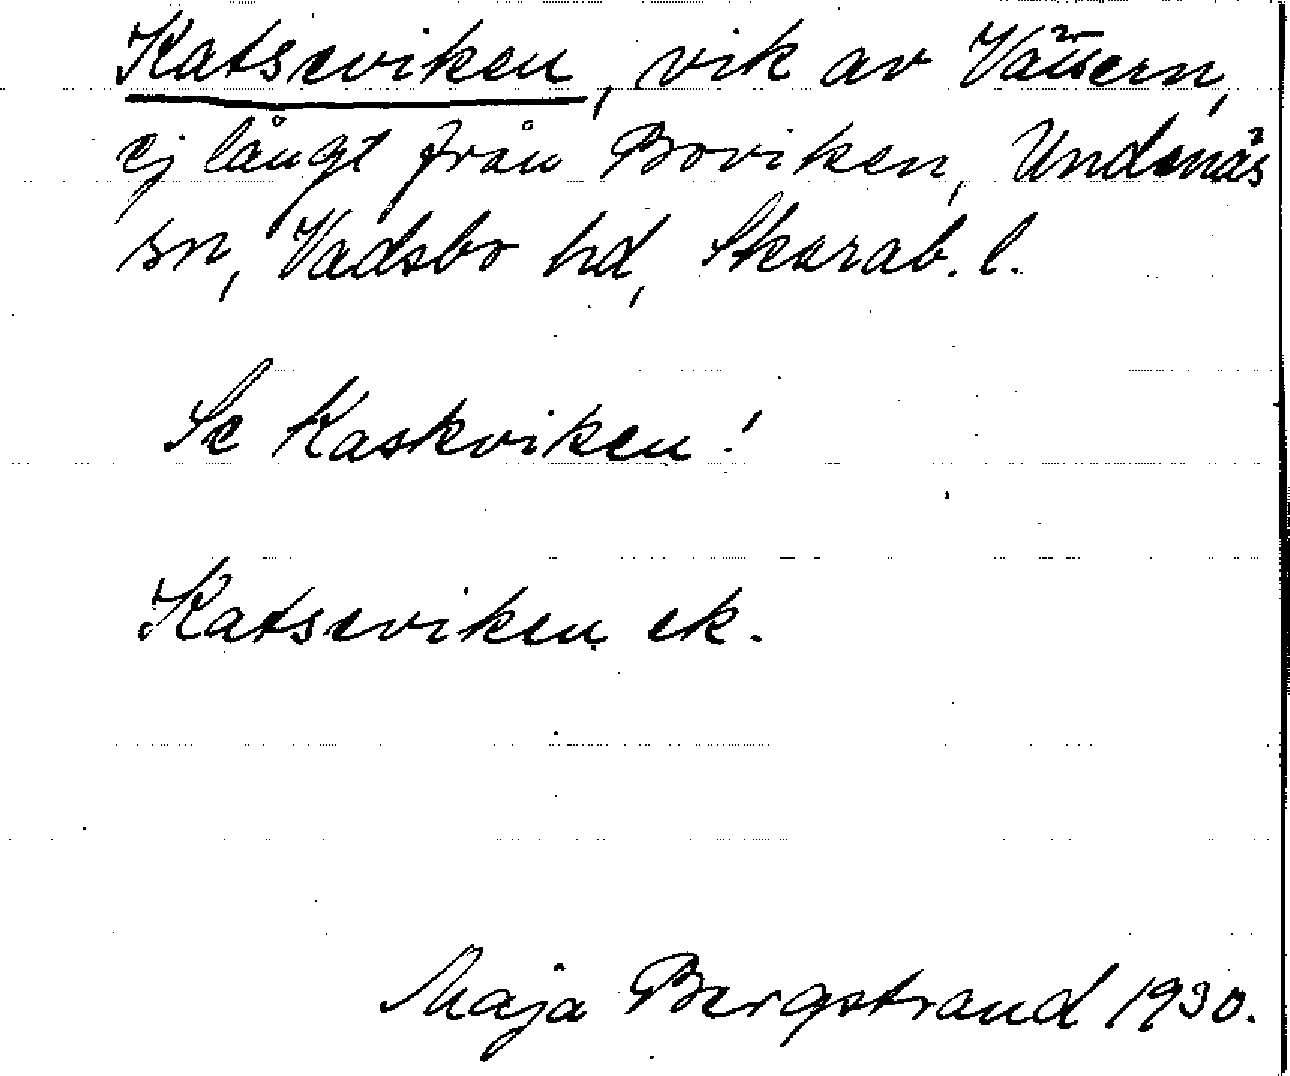 Katseviken, vik av Vättern,
ej långt från Boviken, Undenäs
sn, Vadsbo hd, Skarab. l.
Se Kaskviken!
Katseviken ek.
Maja Bergstrand 1930.